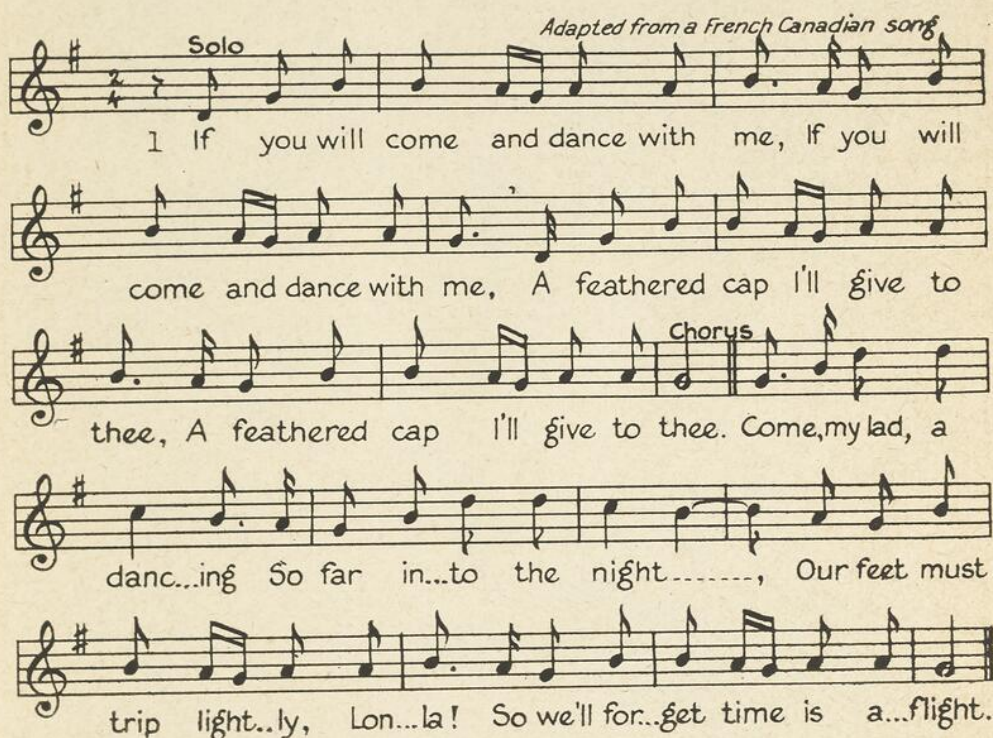 Adapted from a French Canadian song
Solo
2
4
1 If you will come and dance with me, If you will
come and dance with me, A feathered cap I'll give to
Chorus
thee, A feathered cap I'll give to thee. Come, my lad, a
danc...ing So far in...to the night......., Our feet must
trip light..ly, Lon...la! So we'll for...get time is a...flight.